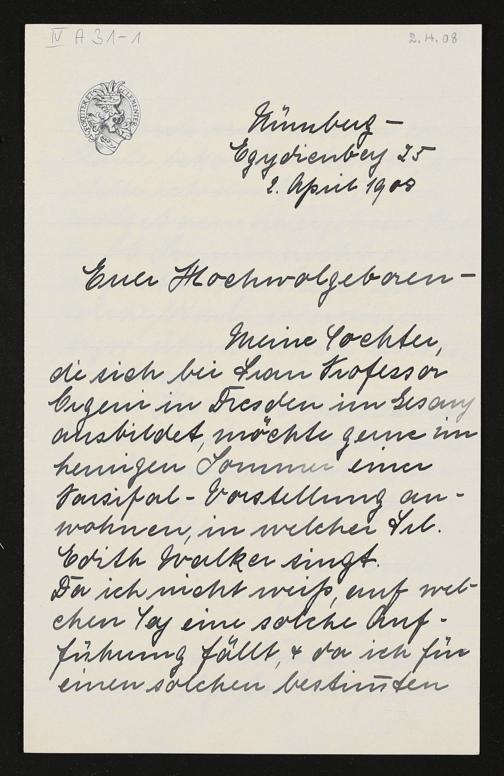 IV A 31-1
2.4.08
FORTITER ET CLEMENTER
Nürnberg -
Egydienberg 25
2. April 1908
Euer Hochwolgeboren -
Meine Tochter,
die sich bei Frau Professor
Orgeni in Dresden im Gesang
ausbildet, möchte gerne im
heurigen Sommer einer
Parsifal - Vorstellung an-
wohnen, in welcher Frl.
Edith Walker singt.
Da ich nicht weiß, auf wel-
chen Tag eine solche Auf-
führung fällt, & da ich für
einen solchen bestim̅ten